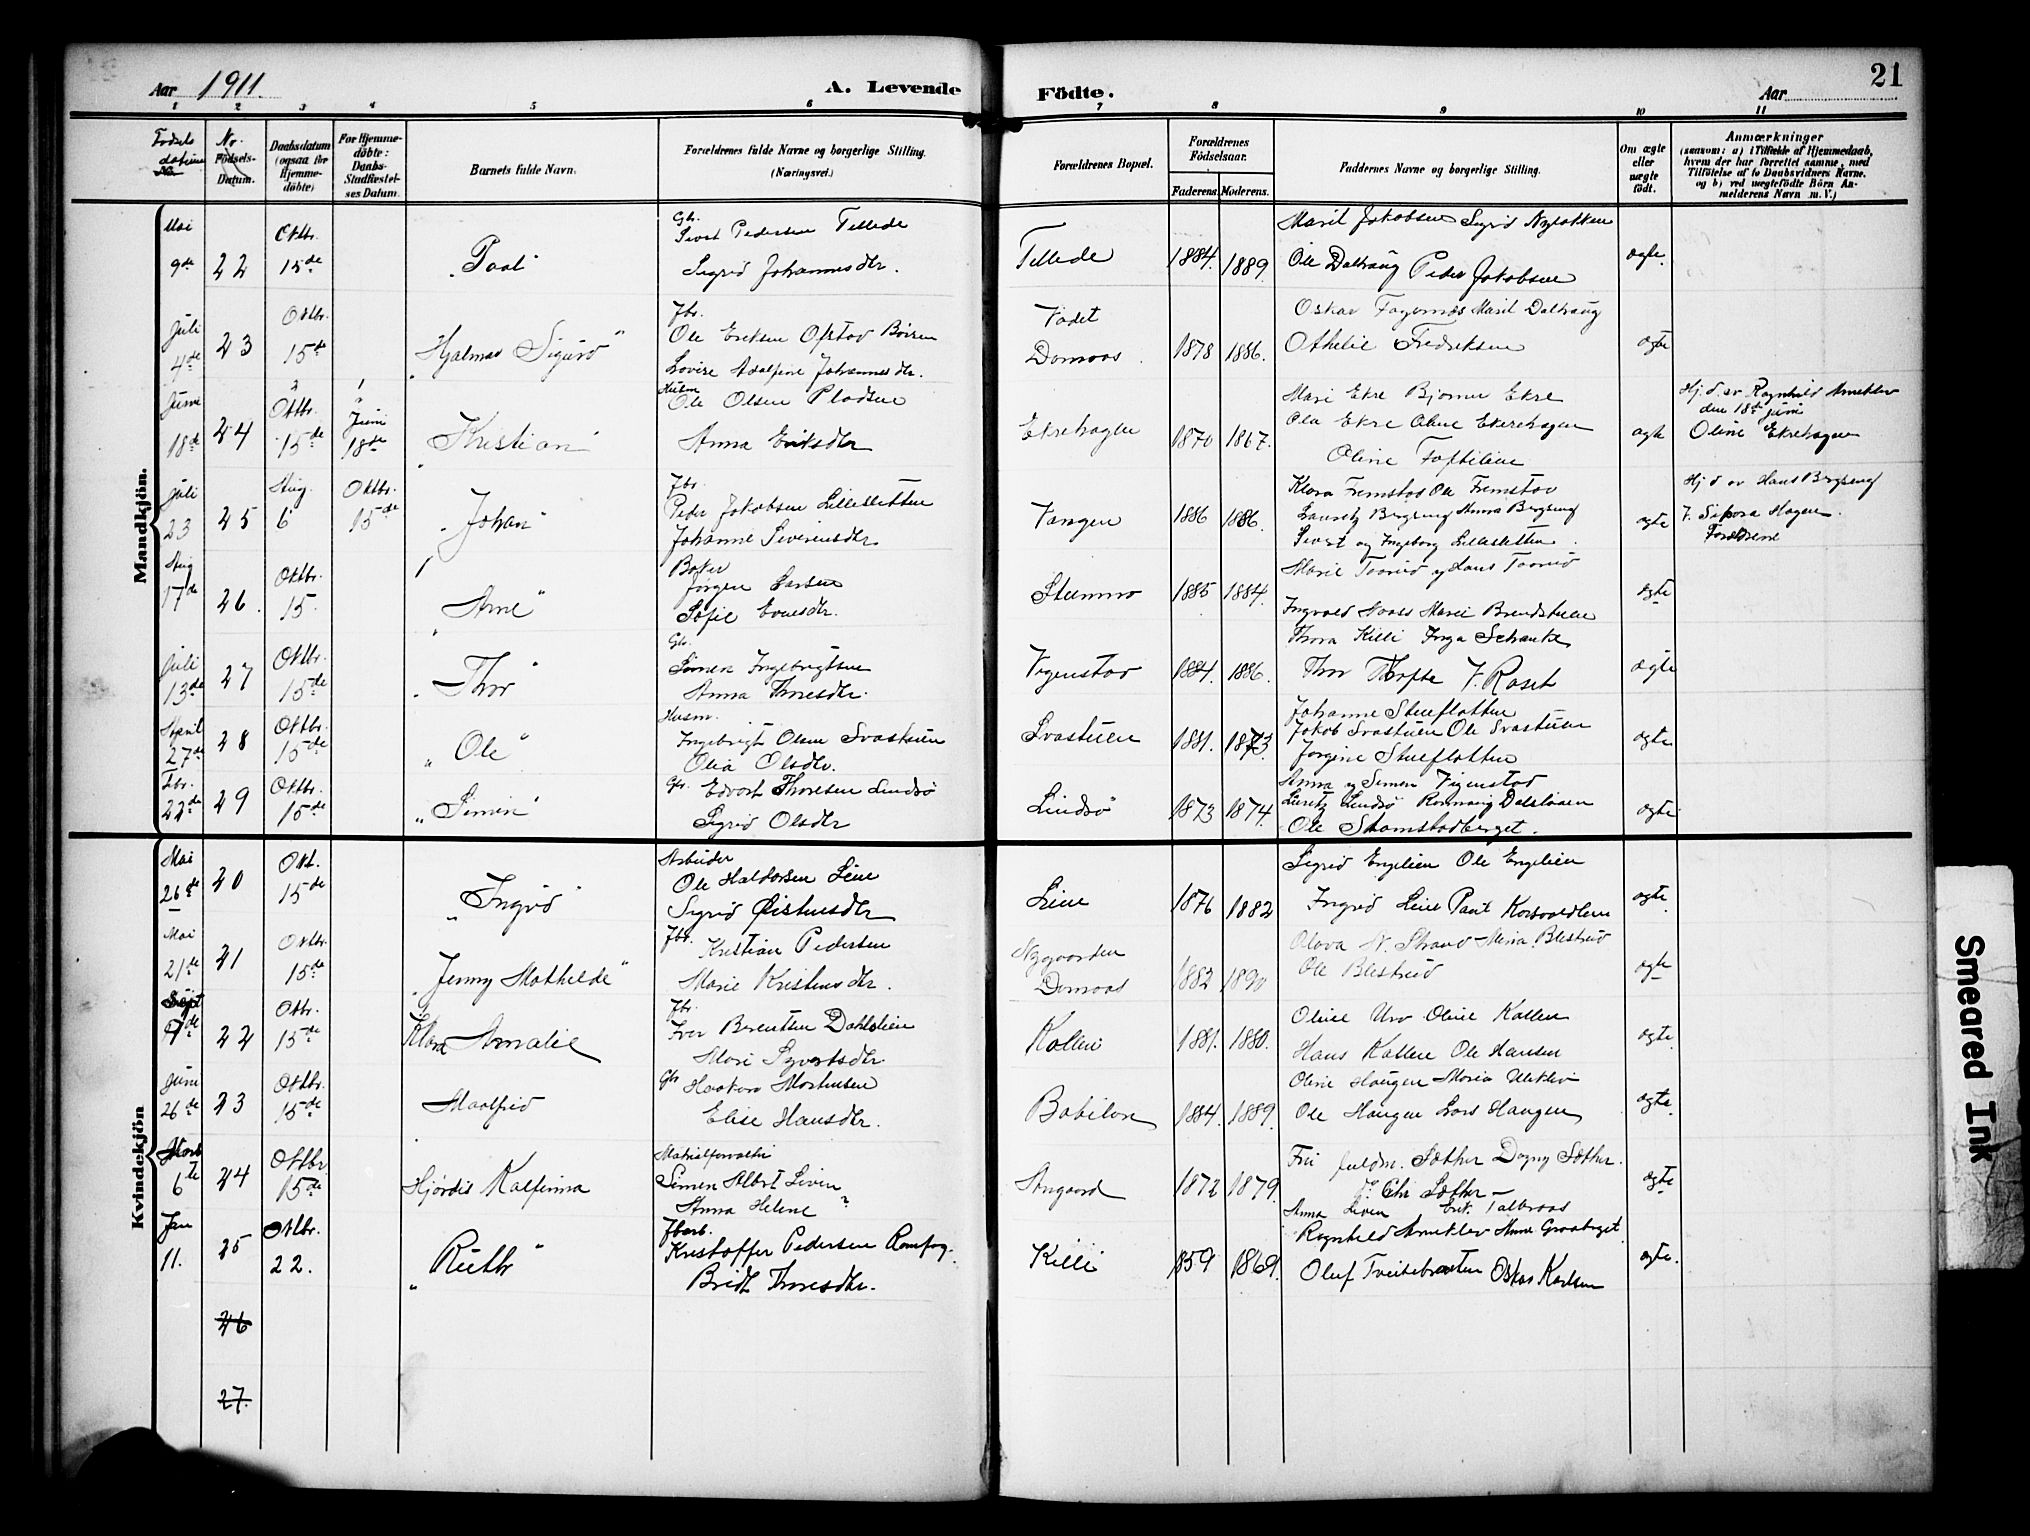 Aar 1911.
A. Levende
Födte.
Aar
21
1 2 3 4 5 6 7 8 9 10 11
Fødsels datum No.
No. Födsels-Datum.
Daabsdatum (ogsaa for Hjemme-döbte)
For Hjemme-döbte: Daabs-Stadfæstel-ses Datum.
Barnets fulde Navn.
Forældrenes fulde Navne og borgerlige Stilling. (Næringsvei.)
Forældrenes Bopæl.
Forældrenes Födselsaar.
Faderens. Moderens.
Faddernes Navne og borgerlige Stilling.
Om ægte eller uægte födt.
Anmærkninger (saasom: a) i Tilfælde af Hjemmedaab, hvem der har forrettet samme, med Tilföielse af to Daabsvidners Navne, og b) ved uægtefödte Börn An-melderens Navn m. V.)
Mandkjön.
Mai 9de 22 Oktbr. 15de "Paal"
Gb. Sivert Pedersen Tellede
Sigrid Johannesdtr.
Tellede 1884. 1889.
Marit Jakobsen Sigrid Nyløkken
Ole Dalhaug Peder Jakobsen
ægte.
Juli 4de 23 Oktbr. 15de "Hjalmar Sigurd"
Jbr. Ole Eriksen Ofstad Böiren
Lovise Adolfine Johannesdtr.
Vadet Domaas. 1878 1886.
Oskar Fagernæs Marit Dalhaug
Othelie Fredriksen
ægte
Juni 18de 24 Oktbr. 15de Juni 18de "Kristian"
Husm Ole Olsen Pladsen
Anna Eriksdtr
Ekrehagen 1870 1867.
Mari Ekre Bjørner Ekre
Ola Ekre Oline Ekrehagen
Oline Toftelien
ægte
Hj. d. av Ragnhild Arneklev
den 18de juni
Oline Ekrehagen
Juli 23 25 Aug. 6 Oktbr. 15de "Johan"
Jbr. Peder Jakobsen Lillesletten
Johanne Siverinsdtr.
Vangen 1886 1886.
Klara Fremstad Ole Fremstad
Lauretz Bergseng Anna Bergseng
Sivert og Ingeborg Lillesletten.
ægte
Hj. d. av Hans Bergseng
V. Sipora Hagen.
Forældrene
Aug 17de 26. Oktbr. 15. "Arne"
Baker Jørgen Larsen
Sofie Evensdtr.
Stuemo 1885 1884.
Marie Taarud og Hans Taarud
Ingvald Haass Marie Brendstuen
ægte
Juli 13de 27 Oktbr. 15de "Thor"
Gb. Simen Ingebrigtsen
Anna Thoresdtr.
Vigenstad 1884. 1886.
Thora Killi Inga Schanke
Thor Thofte J. Raset
ægte
April 27de 28 Oktbr. 15de "Ole"
Husm. Ingebrigt Olsen Svastuen
Olia Olsdtr.
Svastuen 1881. 1873.
Johanne Stueflotten
Jakob Svastuen Ole Svastuen
Jørgine Stueflotten
ægte
Fbr. 22de 29 Oktbr. 15de "Simen"
Gb. Edvart Thoresen Lindsø
Sigrid Olsdtr
Lindsö 1873 1874.
Anna og Simen Vigenstad
Lauretz Lindsø Rønnaug Dalsløaen
Ole Skamstadberget.
ægte
Kvindekjön
Mai 26de 20 Okt. 15de "Ingrid"
Arbeider Ole Haldorsen Lein
Sigrid Øistensdtr
Lein 1876 1882
Sigrid Engelien Ole Engelien
Ingrid Lein Paal Korsvoldlien
ægte
Mai 21de 21 Oktbr. 15de "Jenny Mathilde"
Jbr. Kristian Pedersen
Marie Kristensdtr.
Nygaarden Domaas 1882 1890
Olava N. Strand Maria Blestrud
Ole Blestrud
ægte
Sept 9de 22 Oktbr. 15de Klara Amalie
Jbr. Iver Berentsen Dahlslien
Mari Syvertsdtr.
Kollen 1881. 1880.
Oline Uro Oline Kollen
Hans Kollen Ole Hansen
ægte.
Juni 26de 23 Oktbr. 15de Maalfrid
Gb Haakon Mortensen
Elise Hansdtr.
Babilon 1884. 1889.
Oline Haugen Maria Ulekleiv
Ole Haugen Lars Haugen
ægte.
Marts 6te 24 Oktbr 15de Hjördis Kalfinna
Matrialforvalter Simen Albert Liven
Anna Helene ?
Angaard 1872 1879.
Fru fuldm. Sæther Dagny Sæther.
do Chr Sæther –
Anna Liven Erik Talbraas
ægte
Jan 11. 25 Oktbr. 22. "Ruth"
Jbarb. Kristoffer Pedersen Romfog.
Bridt Thoresdtr.
Killi 1859 1869.
Ragnhild Arneklev Anne Graaberget
Oluf Tveitebraaten Oskar Karlsen
ægte.
26
27.
Smeared Ink